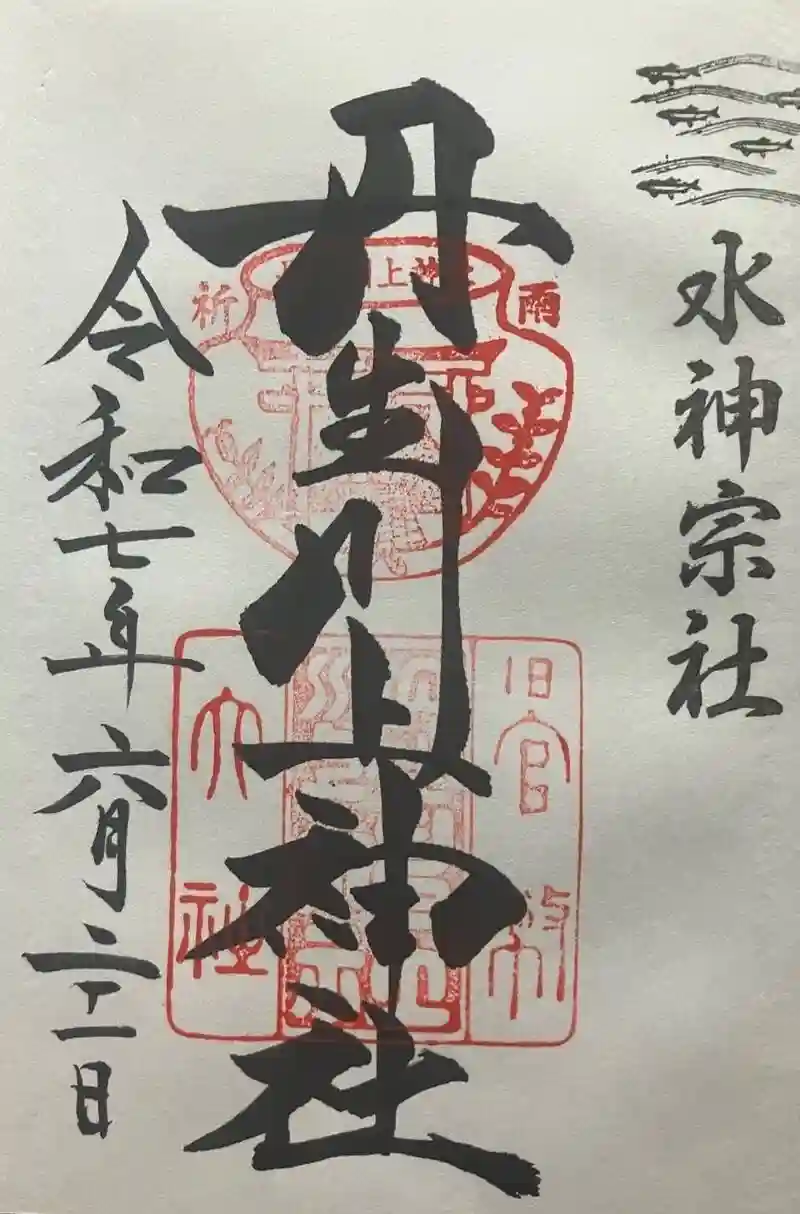 水神宗社
丹生川上神社
雨
祈
旧官幣
大社
令和七年六月二十一日